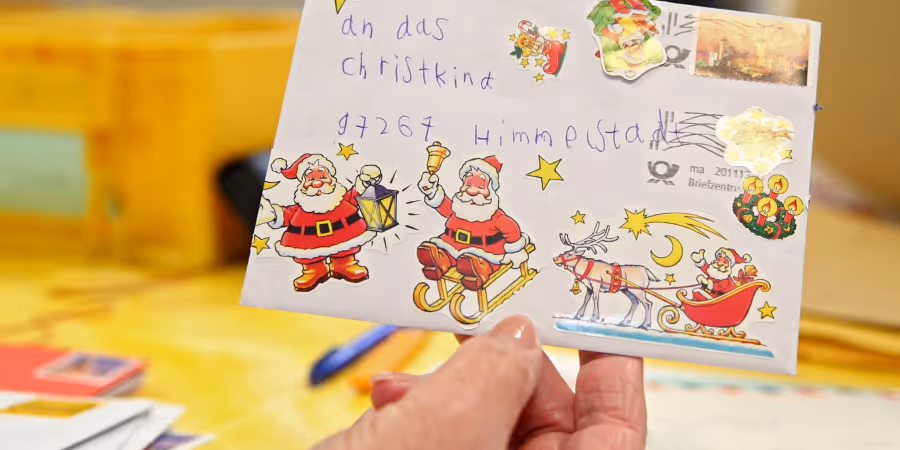 an das
christkind
97267 Himmelstadt
ma 201112
Briefzentru